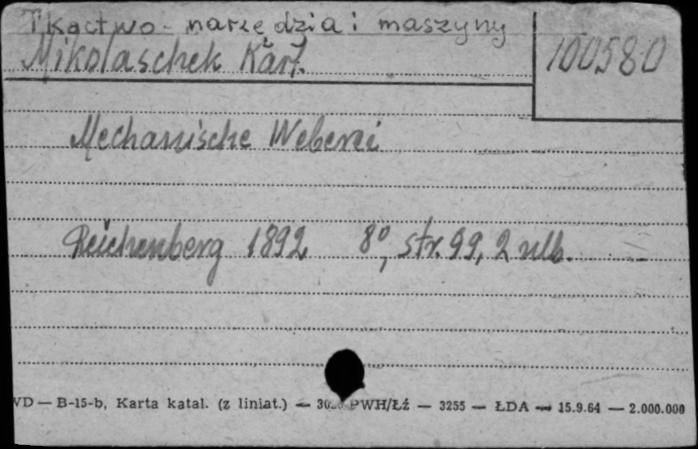 Tkactwo - narzędzia i maszyny
Mikolaschek Karl.
100580
Mechanische Weberei
Reichenberg 1892 8°, str. 99, 2 nlb.
VD — B-15-b, Karta katal. (z liniat.) — PWH/Łź — 3255 — ŁDA — 15.9.64 — 2.000.000